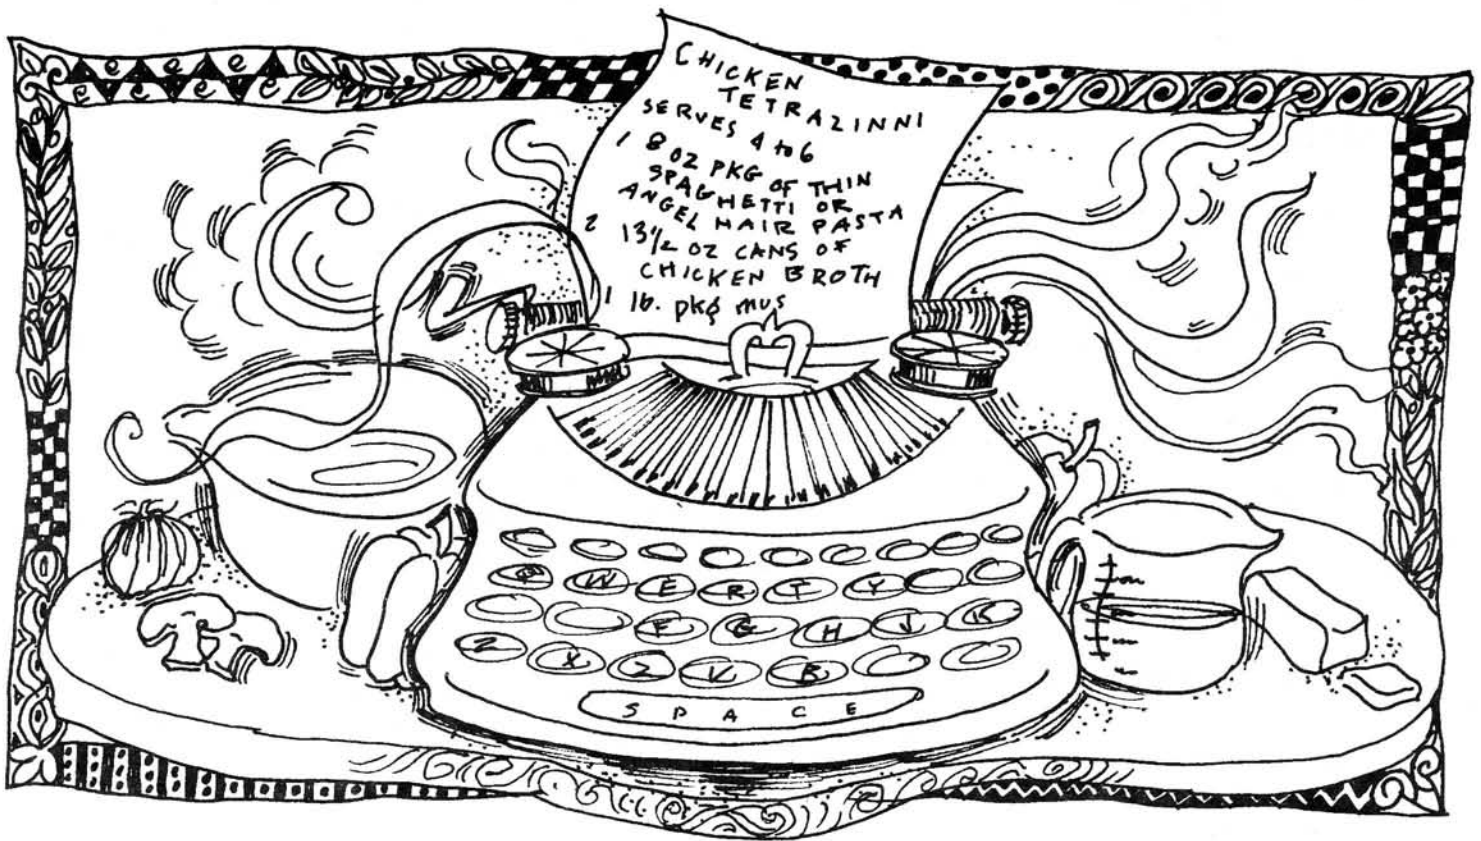 CHICKEN
TETRAZINNI
SERVES 4 to 6
1 8 OZ PKG OF THIN
SPAGHETTI OR
ANGEL HAIR PASTA
2 13 1/2 OZ CANS OF
CHICKEN BROTH
1 lb. pkg mus
Q W E R T Y
F G H J K
Z X Z V B
SPACE